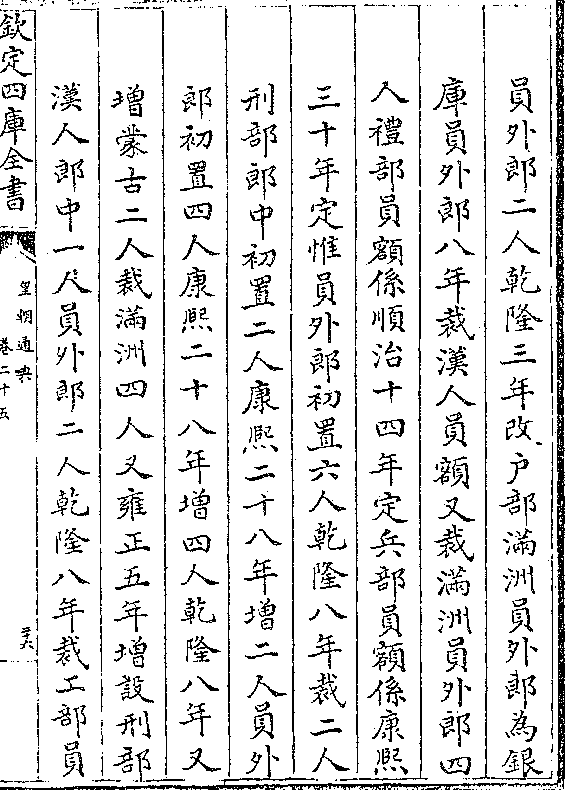 員外郎二人乾隆三年改戶部滿洲員外郎為銀
庫員外郎八年裁漢人員額又裁滿洲員外郎四
人禮部員額係順治十四年定兵部員額係康熙
三十年定惟員外郎初置六人乾隆八年裁二人
刑部郎中初置二人康熙二十八年增二人員外
郎初置四人康熙二十八年增四人乾隆八年又
增蒙古二人裁滿洲四人又雍正五年增設刑部
漢人郎中一人員外郎二人乾隆八年裁工部員
欽定四庫全書
皇朝通典
卷二十五